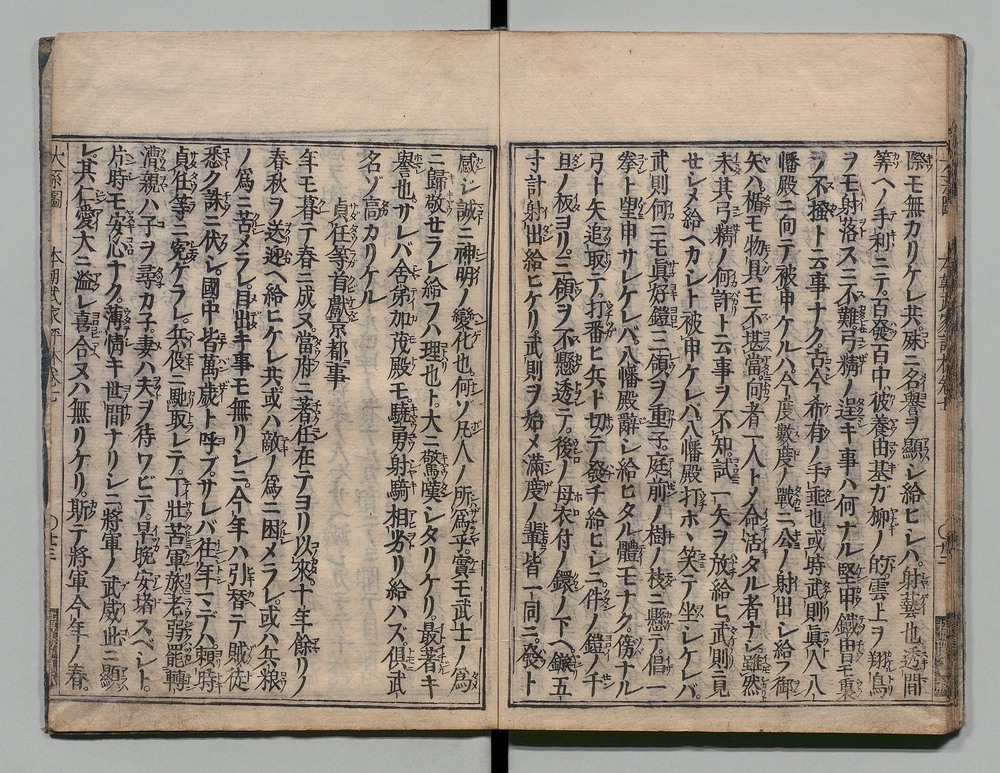 際モ無カリケレ共。殊ニ名譽ヲ顯シ給ヒシハ。射藝也透間
筭ヘノ手利ニテ。百發百中。彼養由基ガ柳ノ的。雲上ヲ翔鳥
ヲモ射落スニ不難。弓精ノ逞キ事ハ何ナル堅甲鐵冑モ裏
ヲ不掻ト云事ナク。古今希有ノ手垂也。或時武則眞人八
幡殿ニ向テ被申ケルハ。今度數度ノ戰ニ公ノ射出シ給フ御
矢ハ。楯モ物具モ不堪。當向者一人トノ命活タル者ナシ雖然
未其弓精ノ何許ト云事ヲ不知。試一矢ヲ放給ヒ武則ニ見
セシメ給ヘカシト被申ケレバ。八幡殿打ホヽ笑テ坐シケレバ。
武則何ニモ眞好鎧三領ヲ重テ。庭前ノ樹ノ枝ニ懸テ。倡一
拳ト望申サレケレバ。八幡殿辭シ給ヒタル體モナク。傍ナル
弓ト矢追取テ。打番ヒ兵ト切テ發チ給ヒシニ。件ノ鎧ノ千
旦ノ板ヨリ。三領ヲ不懸透テ。後ノ母衣付ノ鐶ノ下ヘ鏃五
寸計射出給ヒケリ。武則ヲ始メ滿座ノ輩。皆一同ニ。發ト
感シ誠ニ神明ノ變化也。何ソ凡人ノ所爲乎。實モ武士ノ爲
ニ歸敬セラレ給フハ理也ト。大ニ驚嘆シタリケリ。最著キ
譽也。サレバ舍弟加茂殿モ。驍勇射騎相劣リ給ハズ。俱武
名ゾ高カリケル
貞任等首獻京都事
年モ暮テ春ニ成ヌ。當府ニ著任在テヨリ以來。十年餘リノ
春秋ヲ送迎ヘ給ヒケレ共。或ハ敵ノ爲ニ困メラレ或ハ兵粮
ノ爲ニ苦メラレ。目出キ事モ無リシニ。今年ハ引替テ賊徒
悉ク誅ニ伏シ。國中皆萬歲ト呼ブ。サレバ往年マデハ。賴時
貞任等ニ虐ケラレ。兵役ニ馳取レテ。丁壯苦軍旅老弱罷轉
漕親ハ子ヲ尋カ子。妻ハ夫ヲ待ワビテ。早晚安堵スベシト。
片時モ安心ナク。薄情キ世間ナリシニ將軍ノ武威此ニ顯
レ。其仁愛大ニ溢レ喜合ヌハ無リケリ。斯テ將軍今年ノ春。